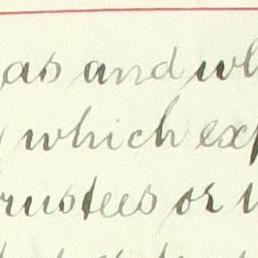 as and wh
which exp
rustees or